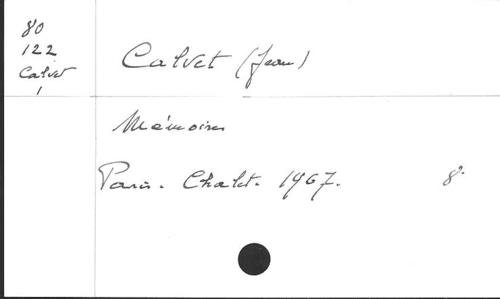 80
122
Calvet
1
Calvet (Jean)
Mémoires
Paris. Chalet. 1967. 8°